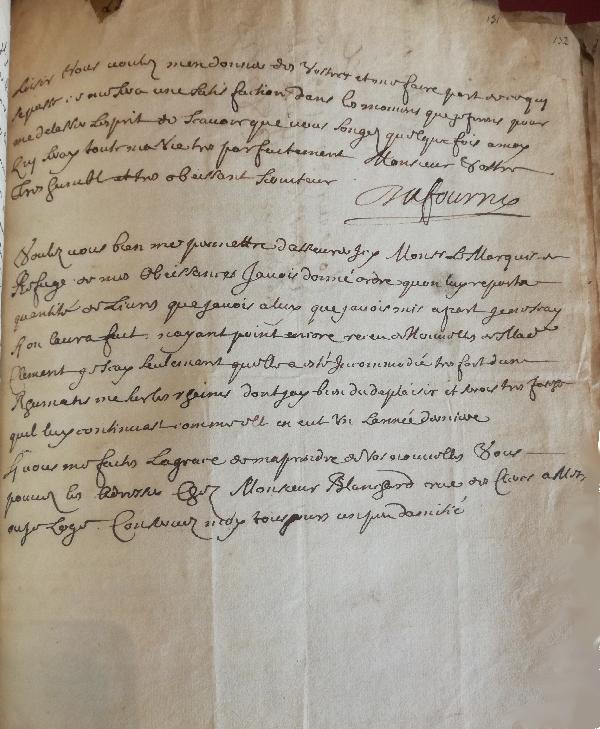 131
132
loisir sy vous voulez men donner des vostres et me faire part de ce qui
se passe ce me sera une satisfaction dans les momens que je prens pour
me delasser lesprit de scavoir que vous songez quelque fois a moy
qui seray toute ma vie tres parfaittement Monsieur Vostre
tres humble et tres obeissant serviteur
Dufourny
Voulez vous bien me permettre dasseurer icy Monsr Le Marquis de
Refuge de mes obeissances Javois donné ordre quon luy reporta
quantité de Livres que javois a luy que javois mis a part je ne scay
si on laura fait nayant point encore receu de Nouvelles de Made
Clement je scay seulement quelle a esté Incommodée tres fort dun
Rhumatisme sur les reins dont jay bien du deplaisir et
quil luy continuast comme elle en eut un Lannée derniere
Sy vous me faites La grace de maprendre de vos nouvelles Vous
pouvez les adresser chez Monsieur Blanchard rue des Clercs a Metz
ou je Loge. Conservez moy tousjours un peu damitié